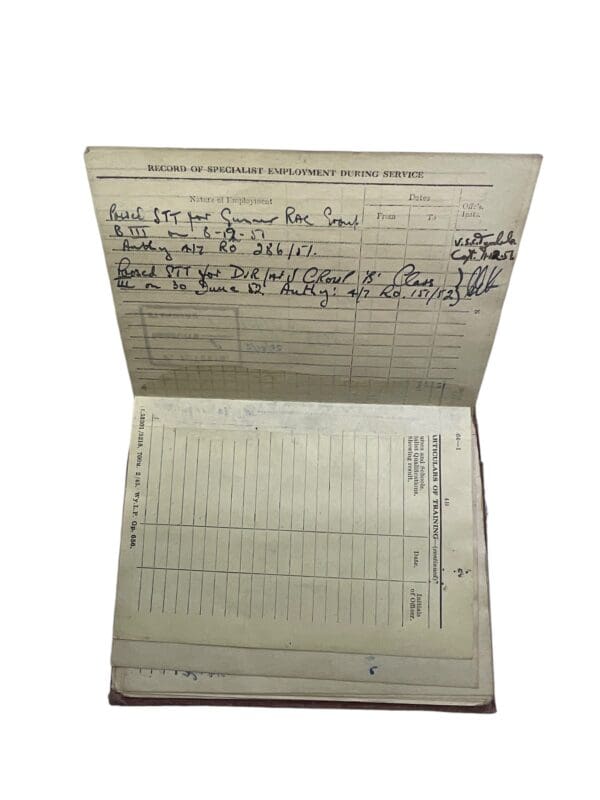 RECORD OF SPECIALIST EMPLOYMENT DURING SERVICE
Nature of Employment
Dates
From
To
Offr's.
Inits.
Passed STT for Gunner RAC Group
B III on 8-12-51
Authy A/7 RO 286/51.
Capt.
Passed STT for DVR/ GROUP 'B' Class
III on 30 June 52. Authy: A/7 RO 151/52
49
64—1
PARTICULARS OF TRAINING—(continued)
Courses and Schools,
Qualifications,
showing result.
Date.
Initials
of Officer.
2/45. Wy.L.P. Gp. 656.